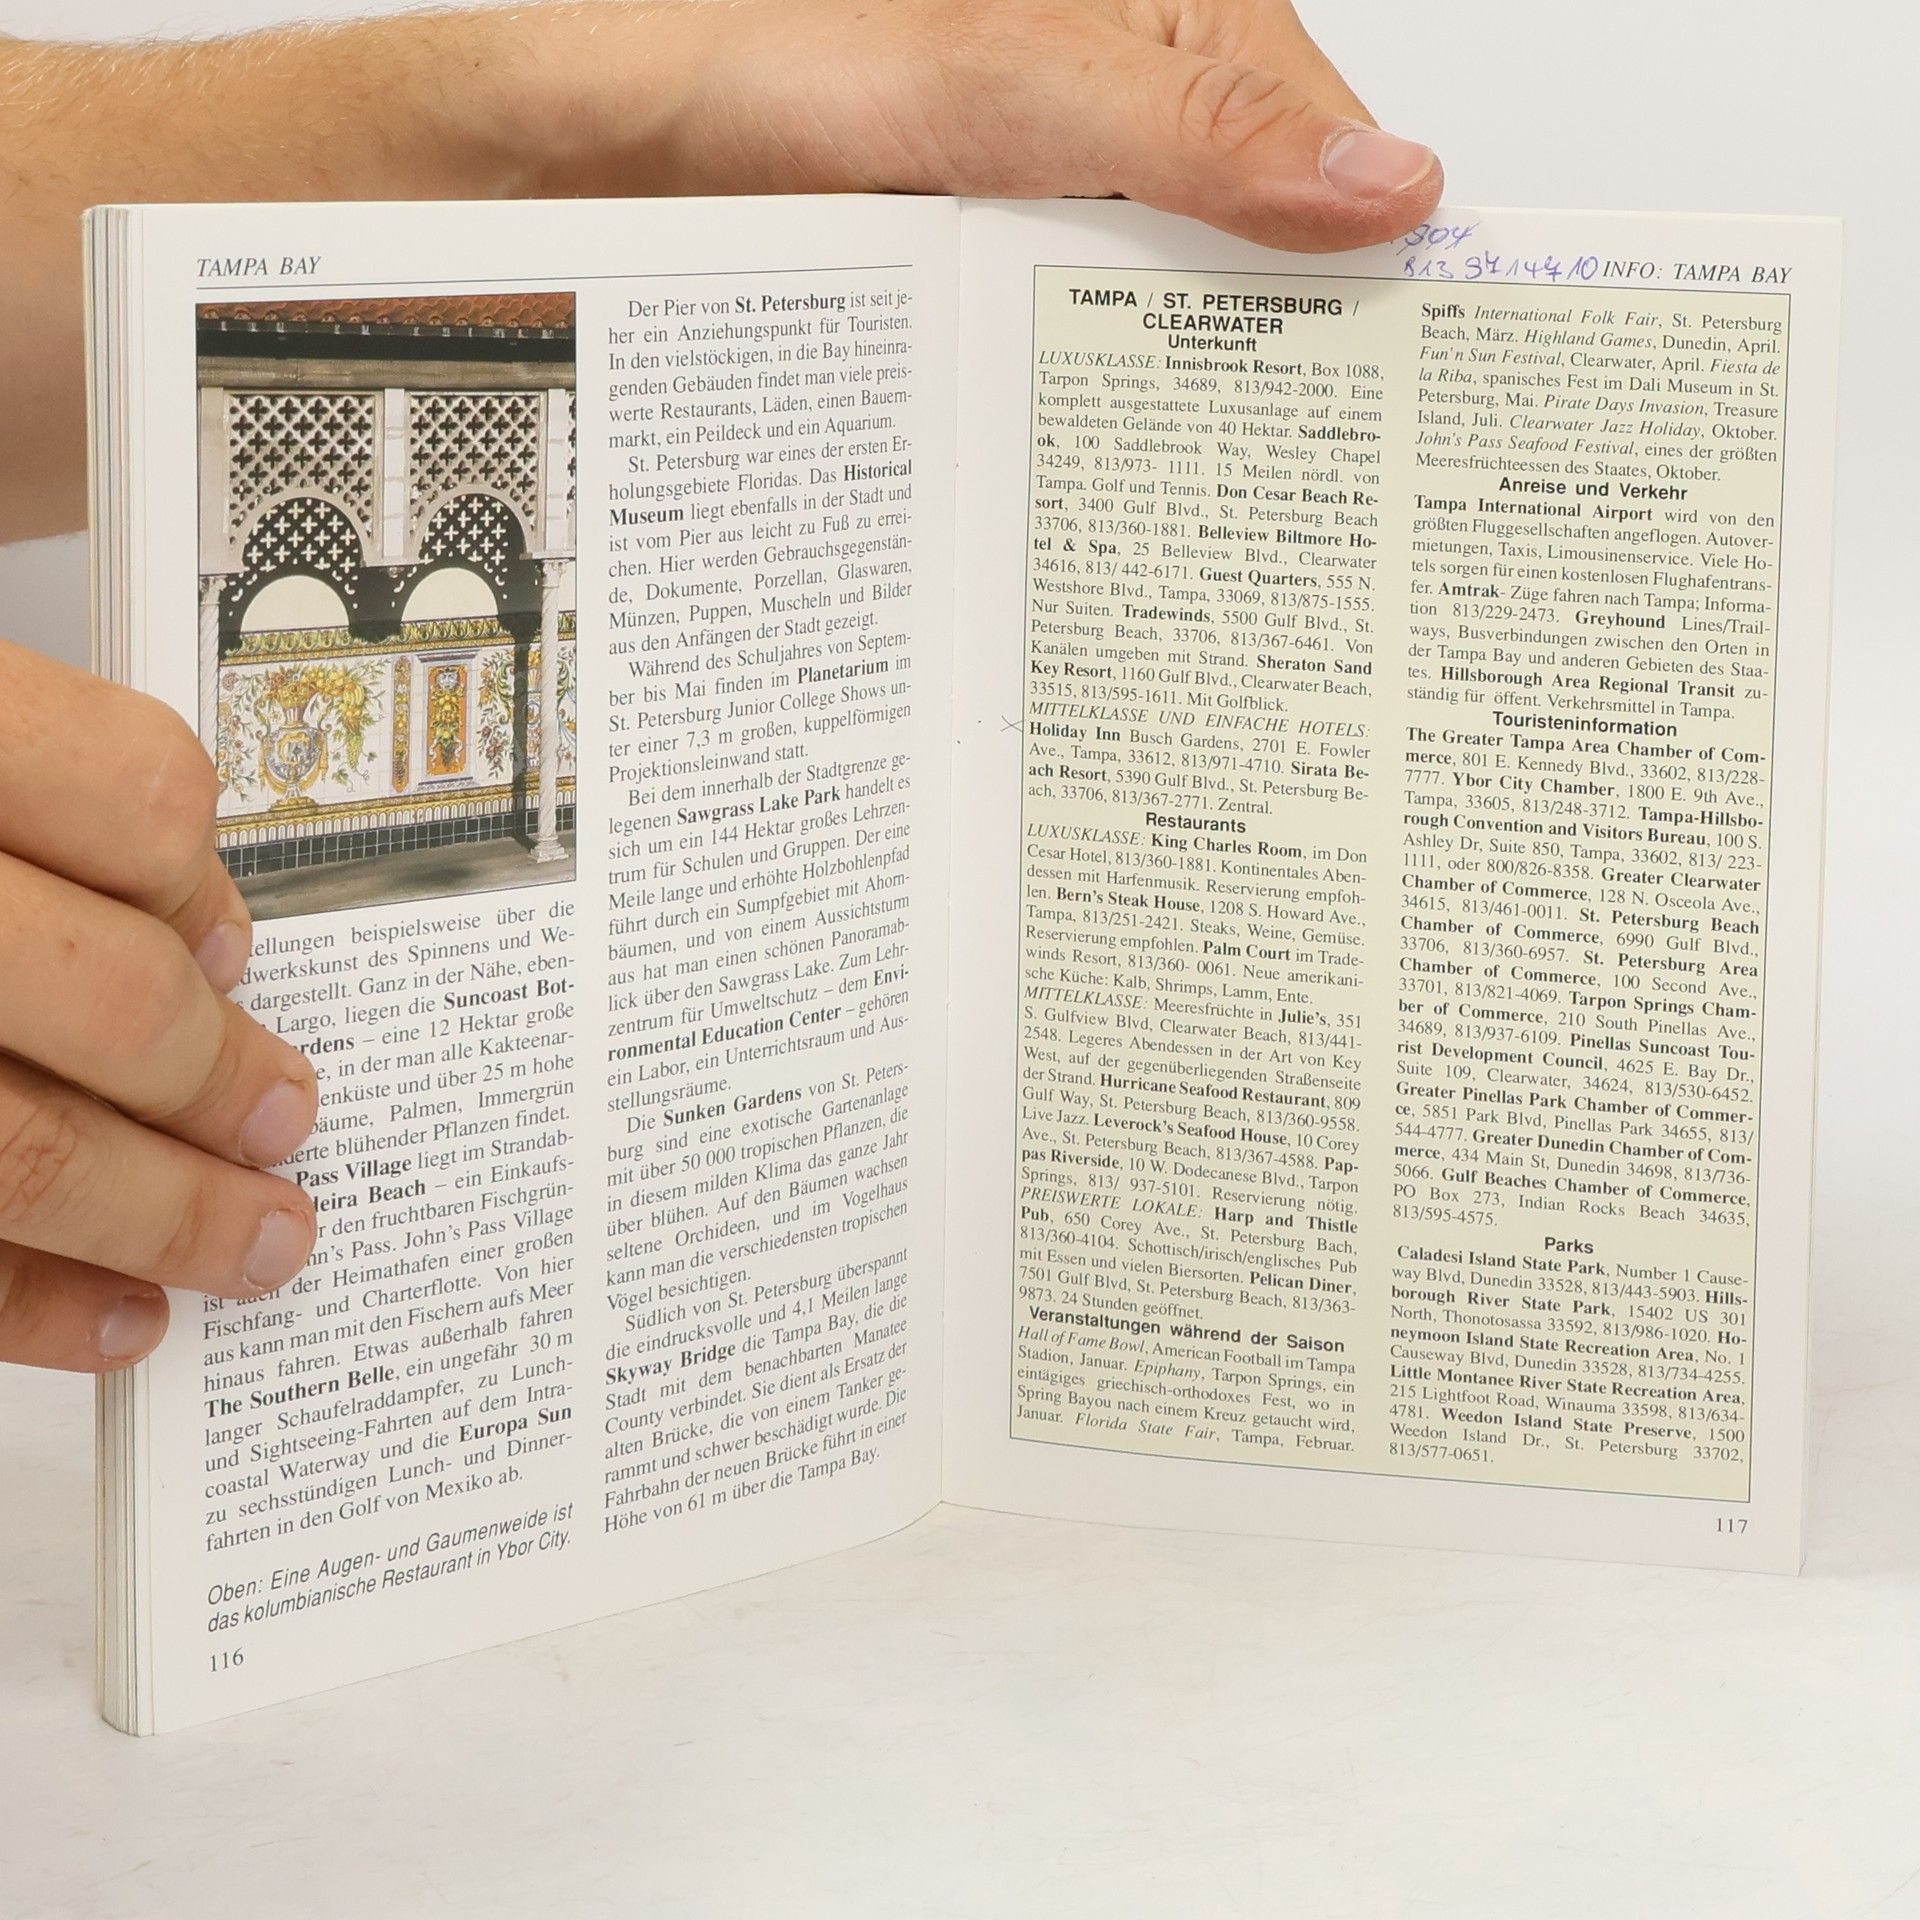 TAMPA BAY
tellungen beispielsweise über die
dwerkskunst des Spinnens und We-
dargestellt. Ganz in der Nähe, eben-
Largo, liegen die Suncoast Bot-
rdens – eine 12 Hektar große
e, in der man alle Kakteenar-
enküste und über 25 m hohe
bäume, Palmen, Immergrün
derte blühender Pflanzen findet.
Pass Village liegt im Strandab-
deira Beach – ein Einkaufs-
r den fruchtbaren Fischgrün-
hn's Pass. John's Pass Village
ist auch der Heimathafen einer großen
Fischfang- und Charterflotte. Von hier
aus kann man mit den Fischern aufs Meer
hinaus fahren. Etwas außerhalb fahren
The Southern Belle, ein ungefähr 30 m
langer Schaufelraddampfer, zu Lunch-
und Sightseeing-Fahrten auf dem Intra-
coastal Waterway und die Europa Sun
zu sechsstündigen Lunch- und Dinner-
fahrten in den Golf von Mexiko ab.
Oben: Eine Augen- und Gaumenweide ist
das kolumbianische Restaurant in Ybor City.
116
Der Pier von St. Petersburg ist seit je-
her ein Anziehungspunkt für Touristen.
In den vielstöckigen, in die Bay hineinra-
genden Gebäuden findet man viele preis-
werte Restaurants, Läden, einen Bauern-
markt, ein Peildeck und ein Aquarium.
St. Petersburg war eines der ersten Er-
holungsgebiete Floridas. Das Historical
Museum liegt ebenfalls in der Stadt und
ist vom Pier aus leicht zu Fuß zu errei-
chen. Hier werden Gebrauchsgegenstän-
de, Dokumente, Porzellan, Glaswaren,
Münzen, Puppen, Muscheln und Bilder
aus den Anfängen der Stadt gezeigt.
Während des Schuljahres von Septem-
ber bis Mai finden im Planetarium im
St. Petersburg Junior College Shows un-
ter einer 7,3 m großen, kuppelförmigen
Projektionsleinwand statt.
Bei dem innerhalb der Stadtgrenze ge-
legenen Sawgrass Lake Park handelt es
sich um ein 144 Hektar großes Lehrzen-
trum für Schulen und Gruppen. Der eine
Meile lange und erhöhte Holzbohlenpfad
führt durch ein Sumpfgebiet mit Ahorn-
bäumen, und von einem Aussichtsturm
aus hat man einen schönen Panoramab-
lick über den Sawgrass Lake. Zum Lehr-
zentrum für Umweltschutz – dem Envi-
ronmental Education Center – gehören
ein Labor, ein Unterrichtsraum und Aus-
stellungsräume.
Die Sunken Gardens von St. Peters-
burg sind eine exotische Gartenanlage
mit über 50 000 tropischen Pflanzen, die
in diesem milden Klima das ganze Jahr
über blühen. Auf den Bäumen wachsen
seltene Orchideen, und im Vogelhaus
kann man die verschiedensten tropischen
Vögel besichtigen.
Südlich von St. Petersburg überspannt
die eindrucksvolle und 4,1 Meilen lange
Skyway Bridge die Tampa Bay, die die
Stadt mit dem benachbarten Manatee
County verbindet. Sie dient als Ersatz der
alten Brücke, die von einem Tanker ge-
rammt und schwer beschädigt wurde. Die
Fahrbahn der neuen Brücke führt in einer
Höhe von 61 m über die Tampa Bay.
INFO: TAMPA BAY
TAMPA / ST. PETERSBURG /
CLEARWATER
Unterkunft
LUXUSKLASSE: Innisbrook Resort, Box 1088,
Tarpon Springs, 34689, 813/942-2000. Eine
komplett ausgestattete Luxusanlage auf einem
bewaldeten Gelände von 40 Hektar. Saddlebro-
ok, 100 Saddlebrook Way, Wesley Chapel
34249, 813/973- 1111. 15 Meilen nördl. von
Tampa. Golf und Tennis. Don Cesar Beach Re-
sort, 3400 Gulf Blvd., St. Petersburg Beach
33706, 813/360-1881. Belleview Biltmore Ho-
tel & Spa, 25 Belleview Blvd., Clearwater
34616, 813/ 442-6171. Guest Quarters, 555 N.
Westshore Blvd., Tampa, 33069, 813/875-1555.
Nur Suiten. Tradewinds, 5500 Gulf Blvd., St.
Petersburg Beach, 33706, 813/367-6461. Von
Kanälen umgeben mit Strand. Sheraton Sand
Key Resort, 1160 Gulf Blvd., Clearwater Beach,
33515, 813/595-1611. Mit Golfblick.
MITTELKLASSE UND EINFACHE HOTELS:
Holiday Inn Busch Gardens, 2701 E. Fowler
Ave., Tampa, 33612, 813/971-4710. Sirata Be-
ach Resort, 5390 Gulf Blvd., St. Petersburg Be-
ach, 33706, 813/367-2771. Zentral.
Restaurants
LUXUSKLASSE: King Charles Room, im Don
Cesar Hotel, 813/360-1881. Kontinentales Aben-
dessen mit Harfenmusik. Reservierung empfoh-
len. Bern's Steak House, 1208 S. Howard Ave.,
Tampa, 813/251-2421. Steaks, Weine, Gemüse.
Reservierung empfohlen. Palm Court im Trade-
winds Resort, 813/360- 0061. Neue amerikani-
sche Küche: Kalb, Shrimps, Lamm, Ente.
MITTELKLASSE: Meeresfrüchte in Julie's, 351
S. Gulfview Blvd, Clearwater Beach, 813/441-
2548. Legeres Abendessen in der Art von Key
West, auf der gegenüberliegenden Straßenseite
der Strand. Hurricane Seafood Restaurant, 809
Gulf Way, St. Petersburg Beach, 813/360-9558.
Live Jazz. Leverock's Seafood House, 10 Corey
Ave., St. Petersburg Beach, 813/367-4588. Pap-
pas Riverside, 10 W. Dodecanese Blvd., Tarpon
Springs, 813/ 937-5101. Reservierung nötig.
PREISWERTE LOKALE: Harp and Thistle
Pub, 650 Corey Ave., St. Petersburg Bach,
813/360-4104. Schottisch/irisch/englisches Pub
mit Essen und vielen Biersorten. Pelican Diner,
7501 Gulf Blvd, St. Petersburg Beach, 813/363-
9873. 24 Stunden geöffnet.
Veranstaltungen während der Saison
Hall of Fame Bowl, American Football im Tampa
Stadion, Januar. Epiphany, Tarpon Springs, ein
eintägiges griechisch-orthodoxes Fest, wo in
Spring Bayou nach einem Kreuz getaucht wird,
Januar. Florida State Fair, Tampa, Februar.
Spiffs International Folk Fair, St. Petersburg
Beach, März. Highland Games, Dunedin, April.
Fun'n Sun Festival, Clearwater, April. Fiesta de
la Riba, spanisches Fest im Dali Museum in St.
Petersburg, Mai. Pirate Days Invasion, Treasure
Island, Juli. Clearwater Jazz Holiday, Oktober.
John's Pass Seafood Festival, eines der größten
Meeresfrüchteessen des Staates, Oktober.
Anreise und Verkehr
Tampa International Airport wird von den
größten Fluggesellschaften angeflogen. Autover-
mietungen, Taxis, Limousinenservice. Viele Ho-
tels sorgen für einen kostenlosen Flughafentrans-
fer. Amtrak- Züge fahren nach Tampa; Informa-
tion 813/229-2473. Greyhound Lines/Trail-
ways, Busverbindungen zwischen den Orten in
der Tampa Bay und anderen Gebieten des Staa-
tes. Hillsborough Area Regional Transit zu-
ständig für öffent. Verkehrsmittel in Tampa.
Touristeninformation
The Greater Tampa Area Chamber of Com-
merce, 801 E. Kennedy Blvd., 33602, 813/228-
7777. Ybor City Chamber, 1800 E. 9th Ave.,
Tampa, 33605, 813/248-3712. Tampa-Hillsbo-
rough Convention and Visitors Bureau, 100 S.
Ashley Dr, Suite 850, Tampa, 33602, 813/ 223-
1111, oder 800/826-8358. Greater Clearwater
Chamber of Commerce, 128 N. Osceola Ave.,
34615, 813/461-0011. St. Petersburg Beach
Chamber of Commerce, 6990 Gulf Blvd.,
33706, 813/360-6957. St. Petersburg Area
Chamber of Commerce, 100 Second Ave.,
33701, 813/821-4069. Tarpon Springs Cham-
ber of Commerce, 210 South Pinellas Ave.,
34689, 813/937-6109. Pinellas Suncoast Tou-
rist Development Council, 4625 E. Bay Dr.,
Suite 109, Clearwater, 34624, 813/530-6452.
Greater Pinellas Park Chamber of Commer-
ce, 5851 Park Blvd, Pinellas Park 34655, 813/
544-4777. Greater Dunedin Chamber of Com-
merce, 434 Main St, Dunedin 34698, 813/736-
5066. Gulf Beaches Chamber of Commerce,
PO Box 273, Indian Rocks Beach 34635,
813/595-4575.
Parks
Caladesi Island State Park, Number 1 Cause-
way Blvd, Dunedin 33528, 813/443-5903. Hills-
borough River State Park, 15402 US 301
North, Thonotosassa 33592, 813/986-1020. Ho-
neymoon Island State Recreation Area, No. 1
Causeway Blvd, Dunedin 33528, 813/734-4255.
Little Montanee River State Recreation Area,
215 Lightfoot Road, Winauma 33598, 813/634-
4781. Weedon Island State Preserve, 1500
Weedon Island Dr., St. Petersburg 33702,
813/577-0651.
117